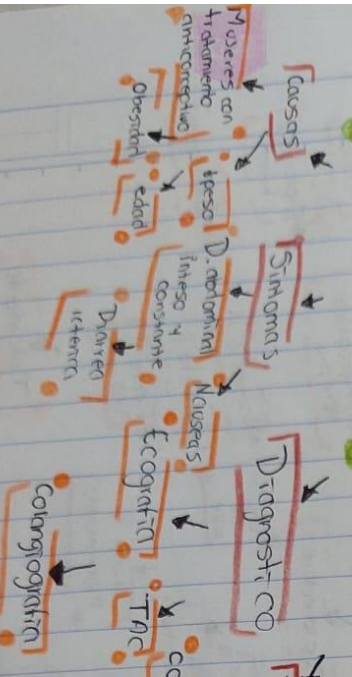 Causas
Mujeres con
tratamiento
anticonceptivo
↓peso
Obesidad
edad
Sintomas
D. abdominal
inteso y
constante
Nauseas
Diarrea
ictericia
Diagnostico
Ecografia
TAC
Colangiografia